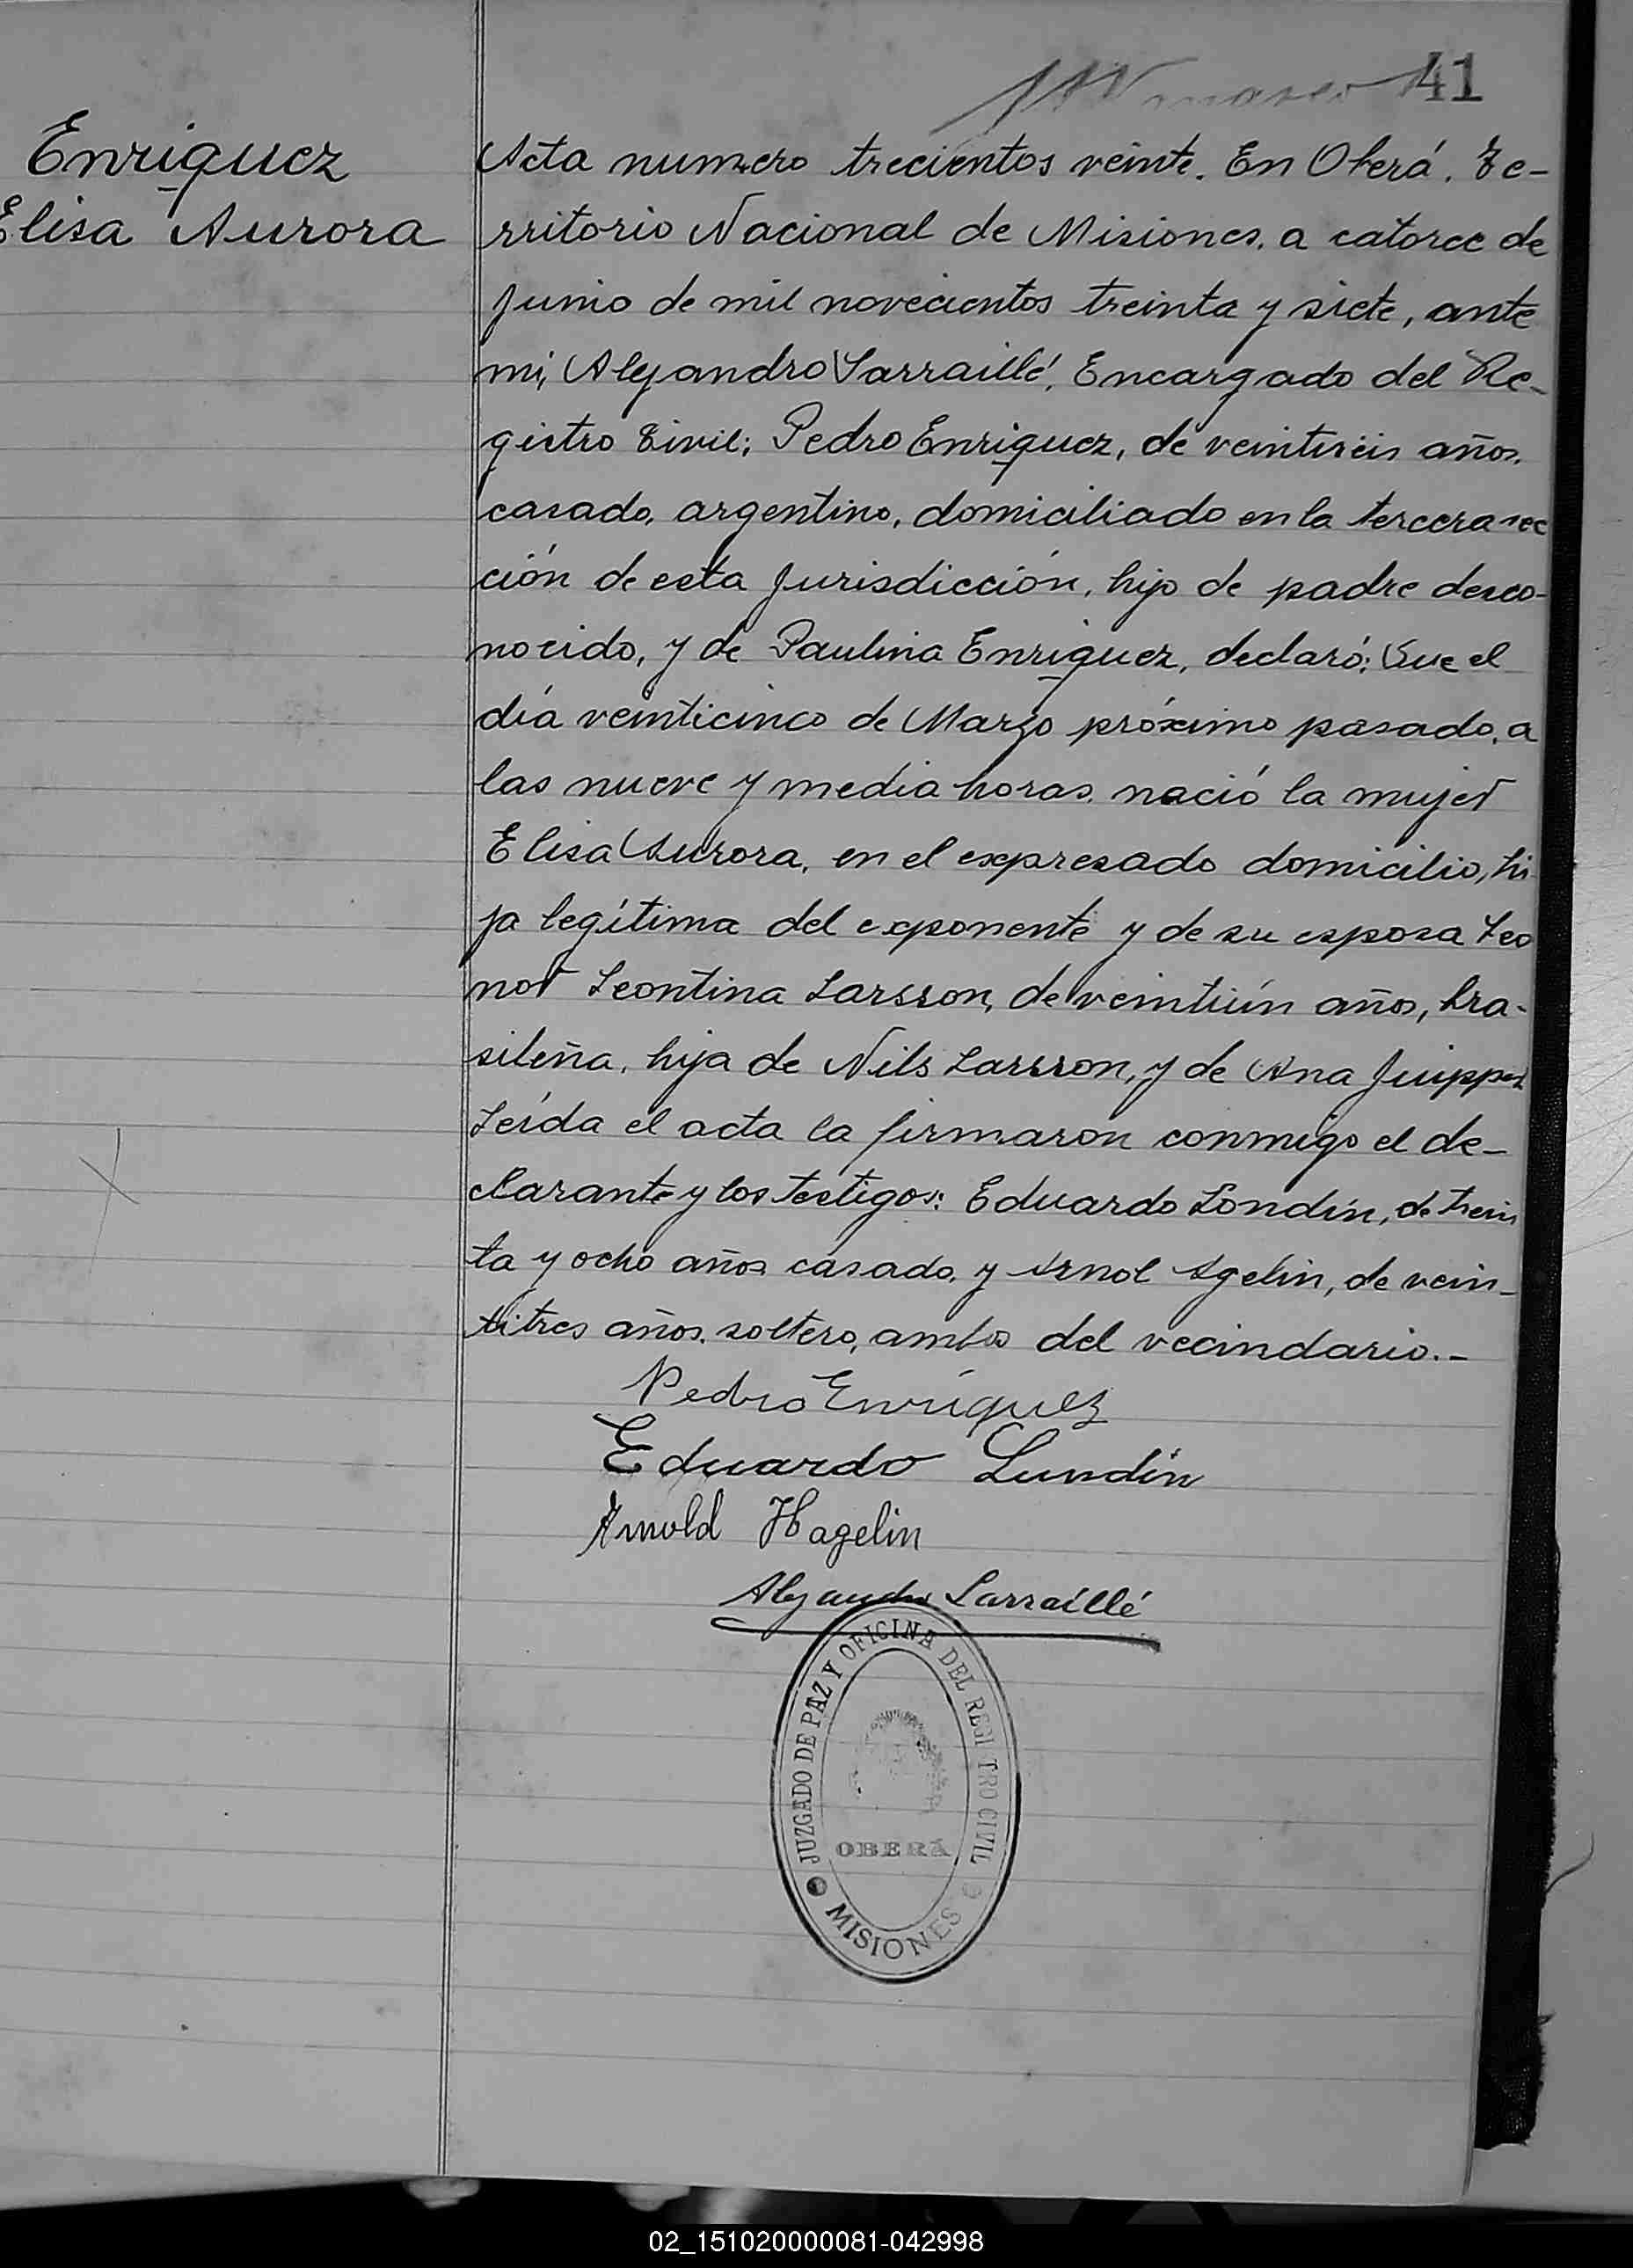 41
Enriquez
Elisa Aurora
Acta numero trecientos veinte. En Oberá. Te-
rritorio Nacional de Misiones, a catorce de
Junio de mil novecientos treinta y siete, ante
mi, Alejandro Sarraillé, Encargado del Re-
gistro Civil; Pedro Enriquez, de veintiseis años,
casado, argentino, domiciliado en la tercera sec
ción de esta Jurisdicción, hijo de padre desco-
nocido, y de Paulina Enriquez, declaró: Que el
día veinticinco de Marzo próximo pasado, a
las nueve y media horas, nació la mujer
Elisa Aurora, en el expresado domicilio, hi
ja legítima del exponente y de su esposa Leo
nor Leontina Larsson, de veintiún años, bra-
sileña, hija de Nils Larsson, y de Ana
Leída el acta la firmaron conmigo el de-
clarante y los testigos: Eduardo Londín, de trein
ta y ocho años casado, y Arnol Agelin, de vein-
titres años, soltero, ambos del vecindario.-
Pedro Enríquez
Eduardo Lundin
Arnold Hagelin
Alejandro Sarraillé
JUZGADO DE PAZ Y OFICINA DEL REGI TRO CIVIL
OBERÁ
MISIONES
02_151020000081-042998